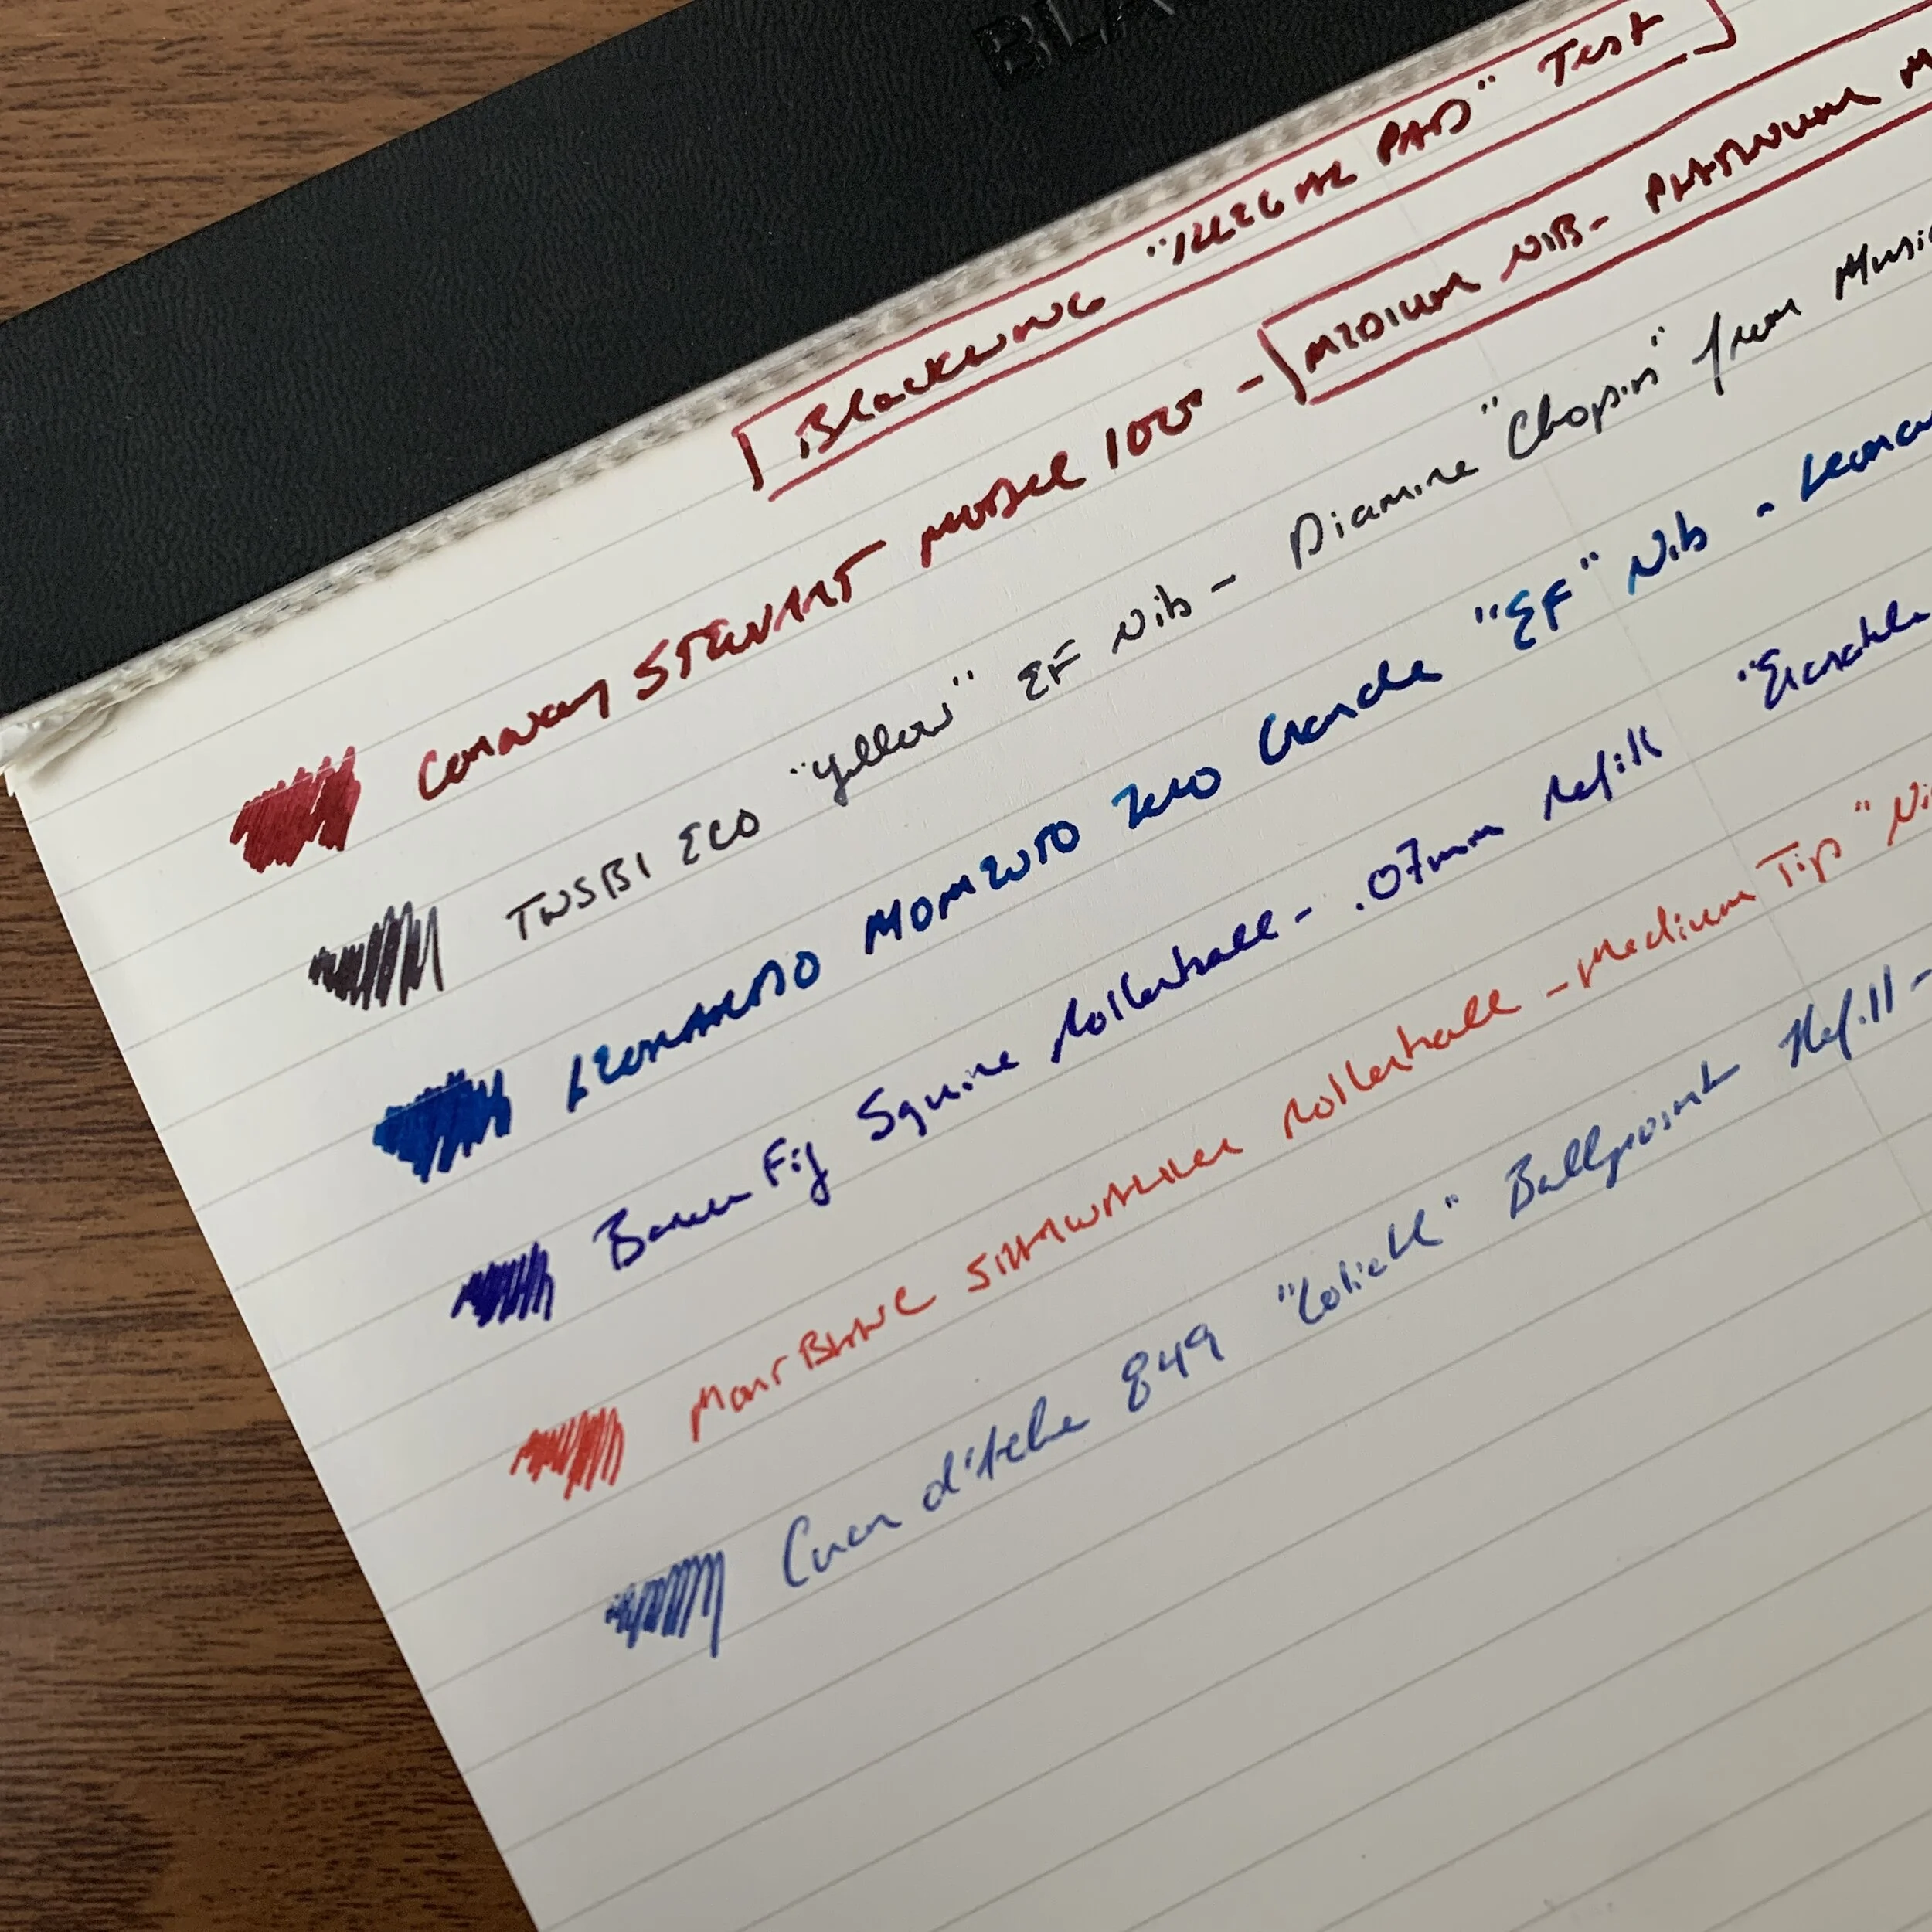 BLA
Blackwing "Illegal PAD" Test
Conway Stewart Model 100 - Medium Nib - Platinum M
TWSBI ECO "Yellow" EF Nib - Diamine "Chopin" from Music
Leonardo Momento Zero Grande "EF" Nib - Leonar
Baron Fig Squire Rollerball - .07mm Refill "Erasable
MontBlanc StarWalker Rollerball - Medium Tip "Ni
Caran d'Ache 849 Ballpoint Refill -